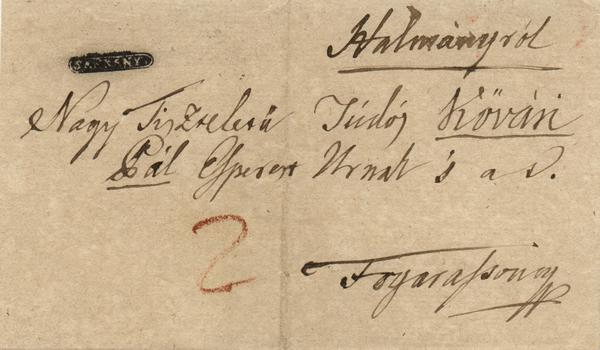 Halmányról
SARKSNY
Nagy Tiszteletü Tudós Kővári
Pál Esperest Urnak 's a t.
2
Fogarasson